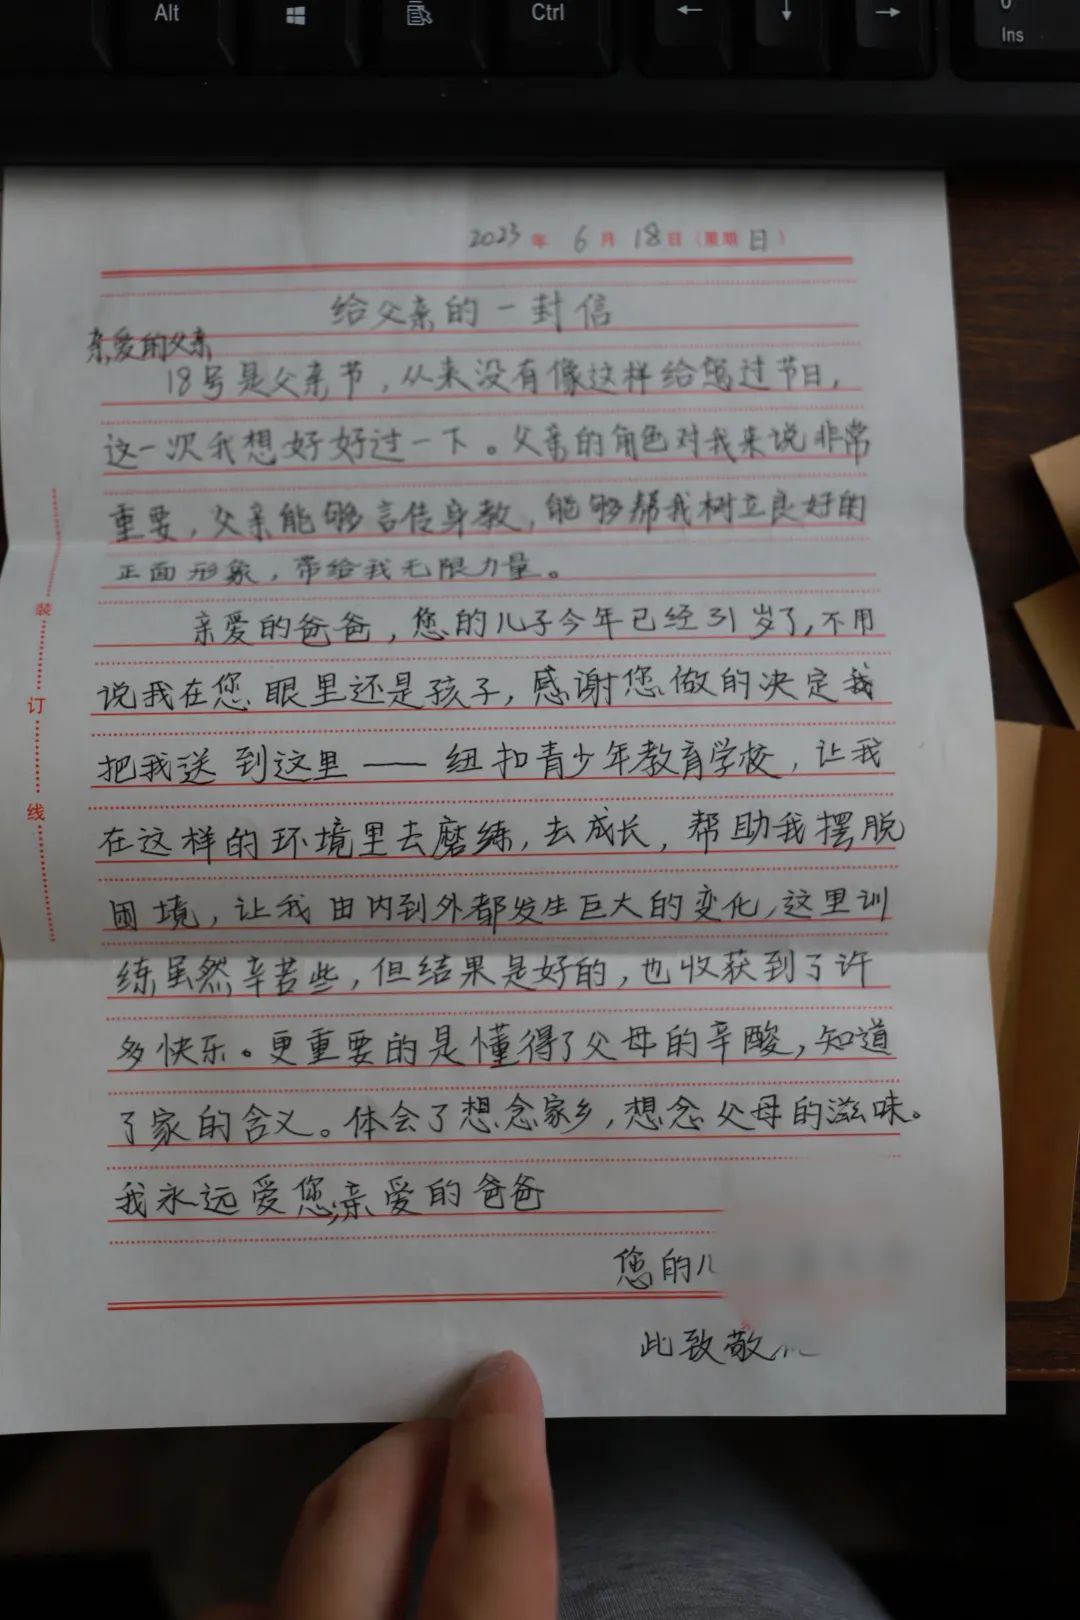 Alt
Ctrl
←
↓
→
0
Ins
2023年6月18日(星期日)
给父亲的一封信
亲爱的父亲
18号是父亲节,从来没有像这样给您过节日,
这一次我想好好过一下。父亲的角色对我来说非常
重要,父亲能够言传身教,能够帮我树立良好的
正面形象,带给我无限力量。
亲爱的爸爸,您的儿子今年已经31岁了,不用
说我在您眼里还是孩子,感谢您做的决定我
把我送到这里——纽扣青少年教育学校,让我
在这样的环境里去磨练,去成长,帮助我摆脱
困境,让我由内到外都发生巨大的变化,这里训
练虽然辛苦些,但结果是好的,也收获到了许
多快乐。更重要的是懂得了父母的辛酸,知道
了家的含义。体会了想念家乡,想念父母的滋味。
我永远爱您,亲爱的爸爸
您的儿
此致敬礼
装
订
线